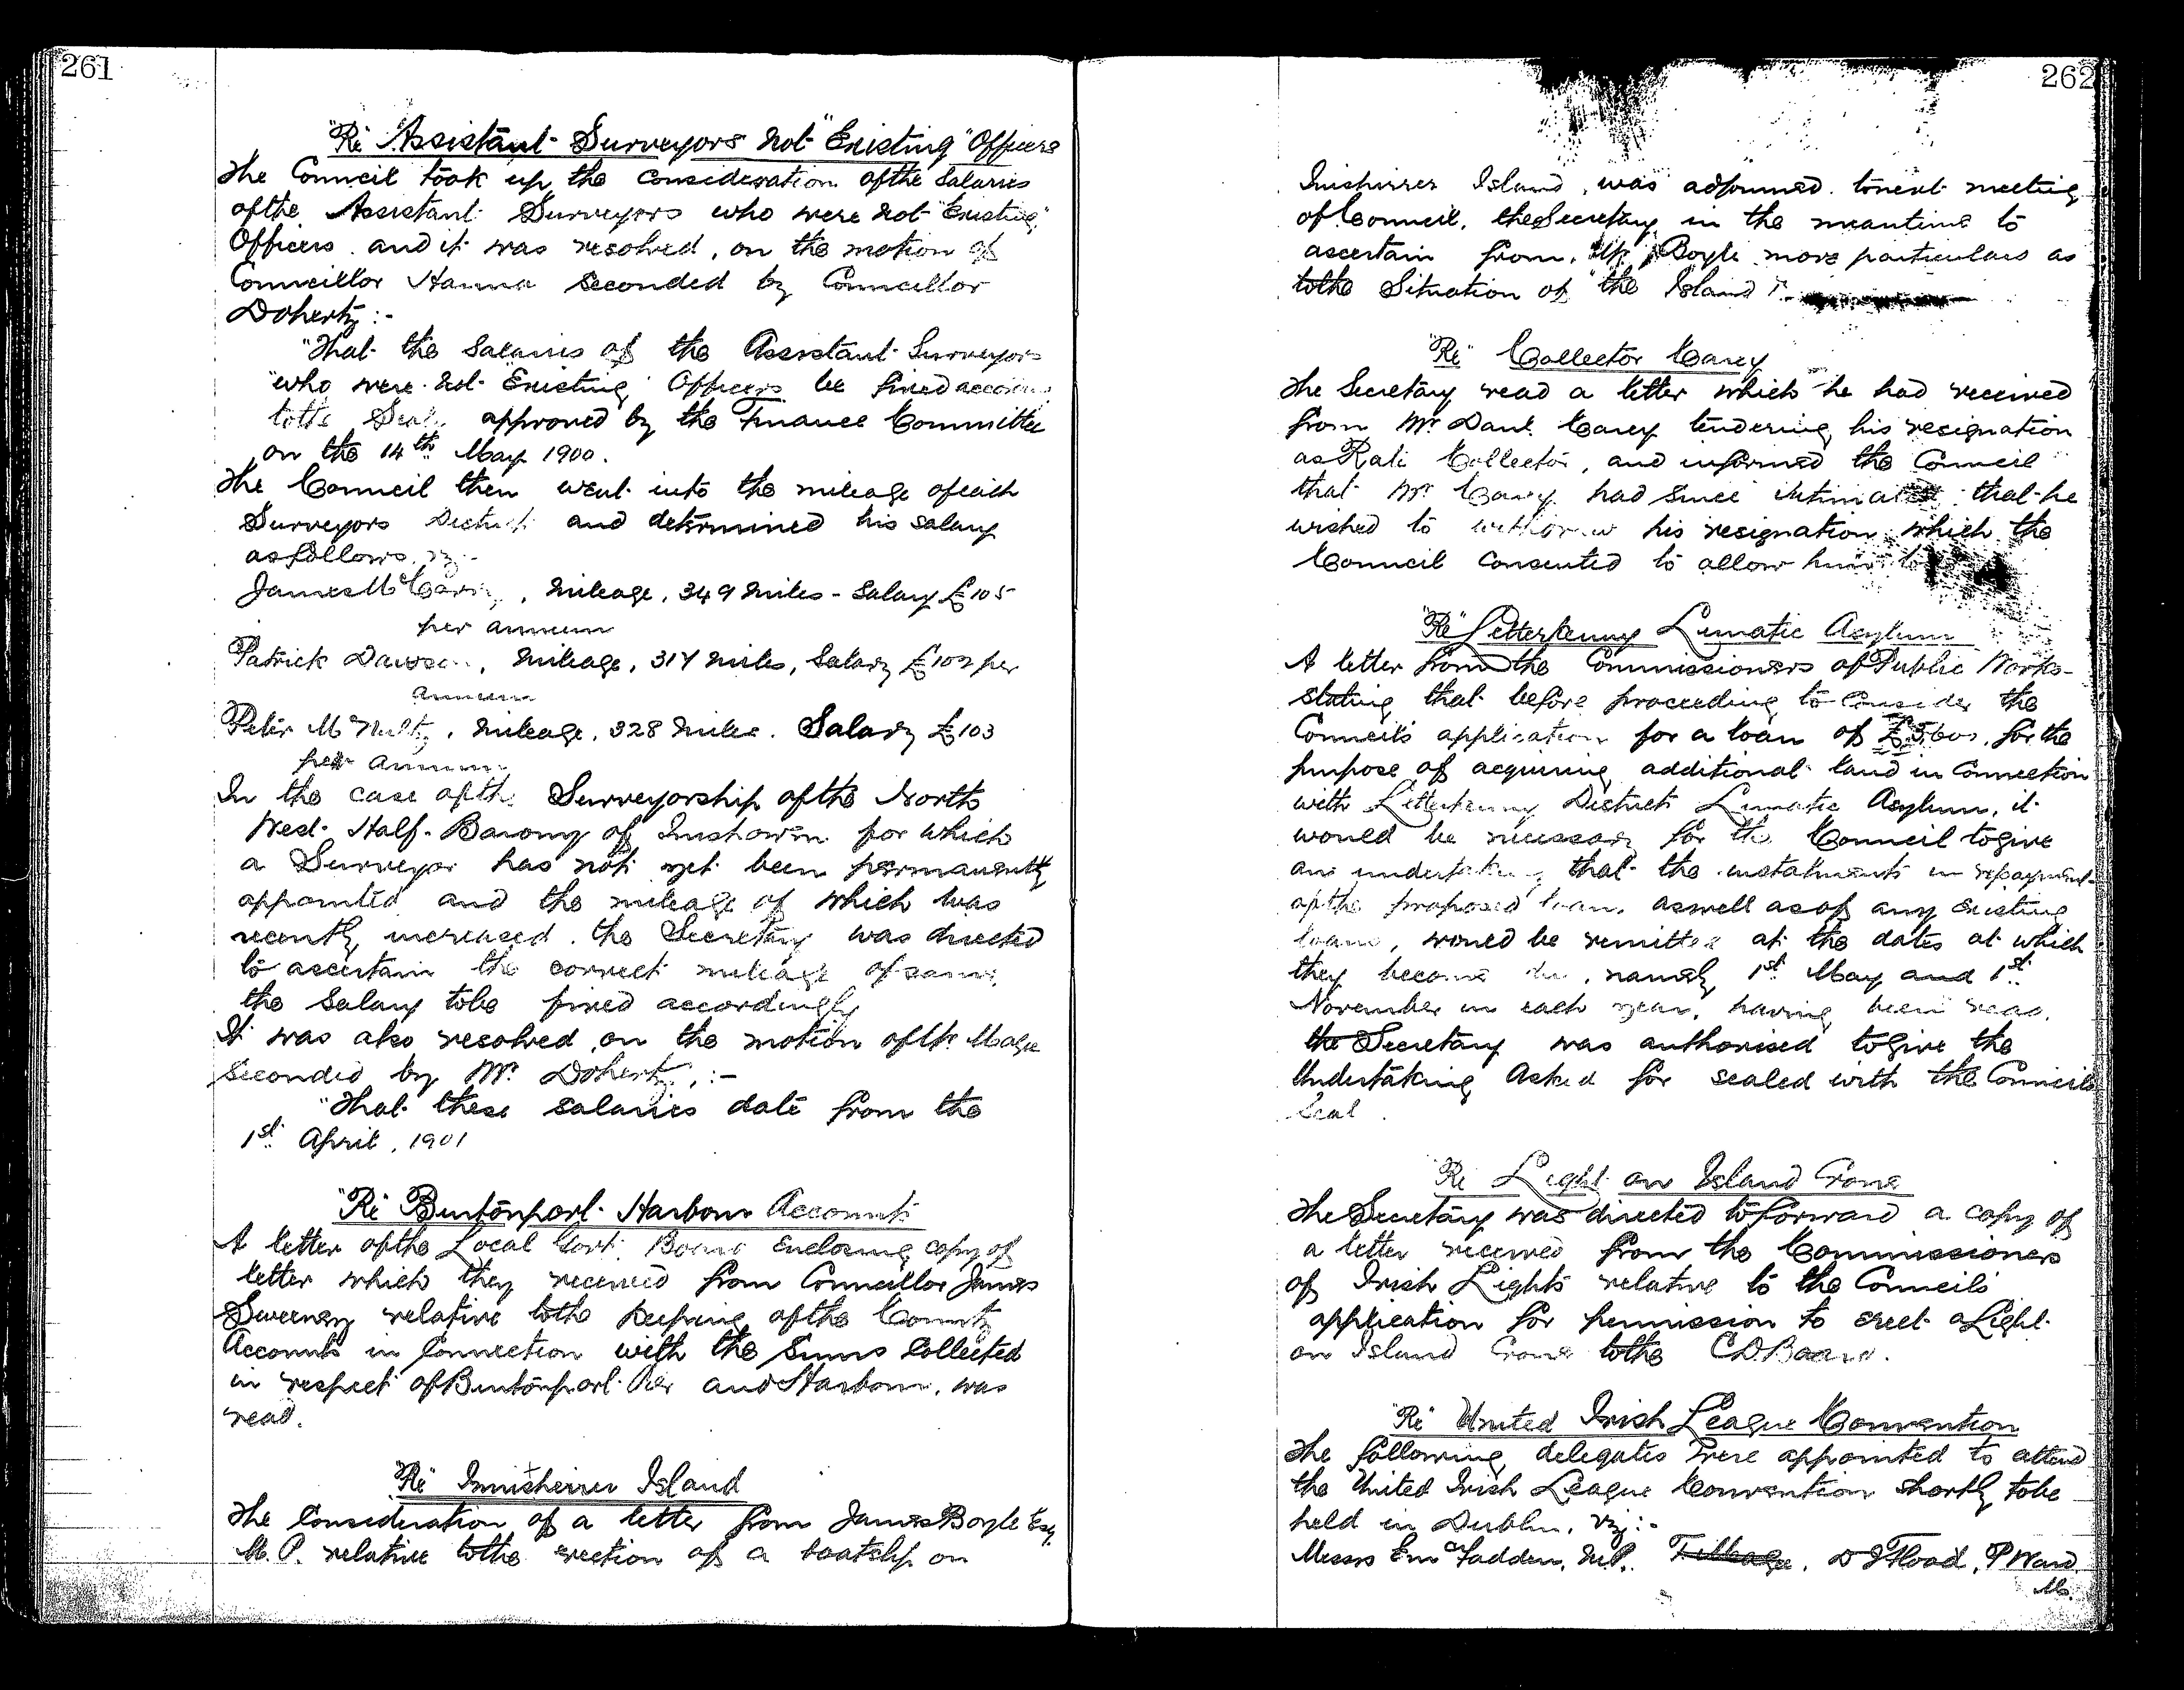 261
"Re" Assistant Surveyors not "Existing" Officers
The Council took up the consideration of the Salaries
of the Assistant Surveyors who were not "Existing"
Officers and it was resolved, on the motion of
Councillor Hanna seconded by Councillor
Doherty :-
"That the Salaries of the Assistant Surveyors
"who were not "Existing" Officers be fixed according
to the Scale approved by the Finance Committee
on the 14th May 1900.
The Council then went into the mileage of each
Surveyors District and determined his salary
as follows, viz:-
James McCarry, Mileage, 349 Miles - Salary £105
per annum
Patrick Dawson, Mileage, 317 Miles, Salary £102 per
annum
Peter McNulty, Mileage, 328 Miles. Salary £103
per annum
In the case of the Surveyorship of the North
West Half-Barony of Inishowen for which
a Surveyor has not yet been permanently
appointed and the mileage of which was
recently increased, the Secretary was directed
to ascertain the correct mileage of same,
the salary to be fixed accordingly
It was also resolved, on the motion of Mr
seconded by Mr Doherty, :-
"That these salaries date from the
1st April, 1901
"Re" Burtonport Harbour Accounts
A letter of the Local Govt. Board enclosing copy of
letter which they received from Councillor James
Sweeney relative to the keeping of the County
Accounts in Connection with the Sums Collected
in respect of Burtonport Pier and Harbour, was
read.
"Re" Innishirrer Island
The Consideration of a letter from James Boyle Esq.
M.P. relative to the erection of a boatslip on
262
Inishirrer Island, was adjourned to next meeting
of Council, the Secretary in the meantime to
ascertain from Mr Boyle more particulars as
to the Situation of the Island
"Re" Collector Carey
The Secretary read a letter which he had received
from Mr Danl. Carey tendering his resignation
as Rate Collector, and informed the Council
that Mr Carey had since intimated that he
wished to withdraw his resignation, which the
Council consented to allow him to
"Re" Letterkenny Lunatic Asylum
A letter from the Commissioners of Public Works
stating that before proceeding to consider the
Council's application for a loan of for the
purpose of acquiring additional land in Connection
with Letterkenny District Lunatic Asylum, it
would be necessary for the Council to give
an undertaking that the instalments in repayment
of the proposed loan, as well as of any existing
loans, would be remitted at the dates at which
they become due, namely 1st May and 1st
November in each year, having been read,
the Secretary was authorised to give the
Undertaking Asked for sealed with the Council's
Seal.
"Re" Light on Island Crone
The Secretary was directed to forward a copy of
a letter received from the Commissioners
of Irish Lights relative to the Council's
application for permission to erect a Light
on Island Crone to the C D Board.
"Re" United Irish League Convention
The following delegates were appointed to attend
the United Irish League Convention shortly to be
held in Dublin, viz:-
Messrs E McFadden, M.P. D J Flood, P Ward
Mc